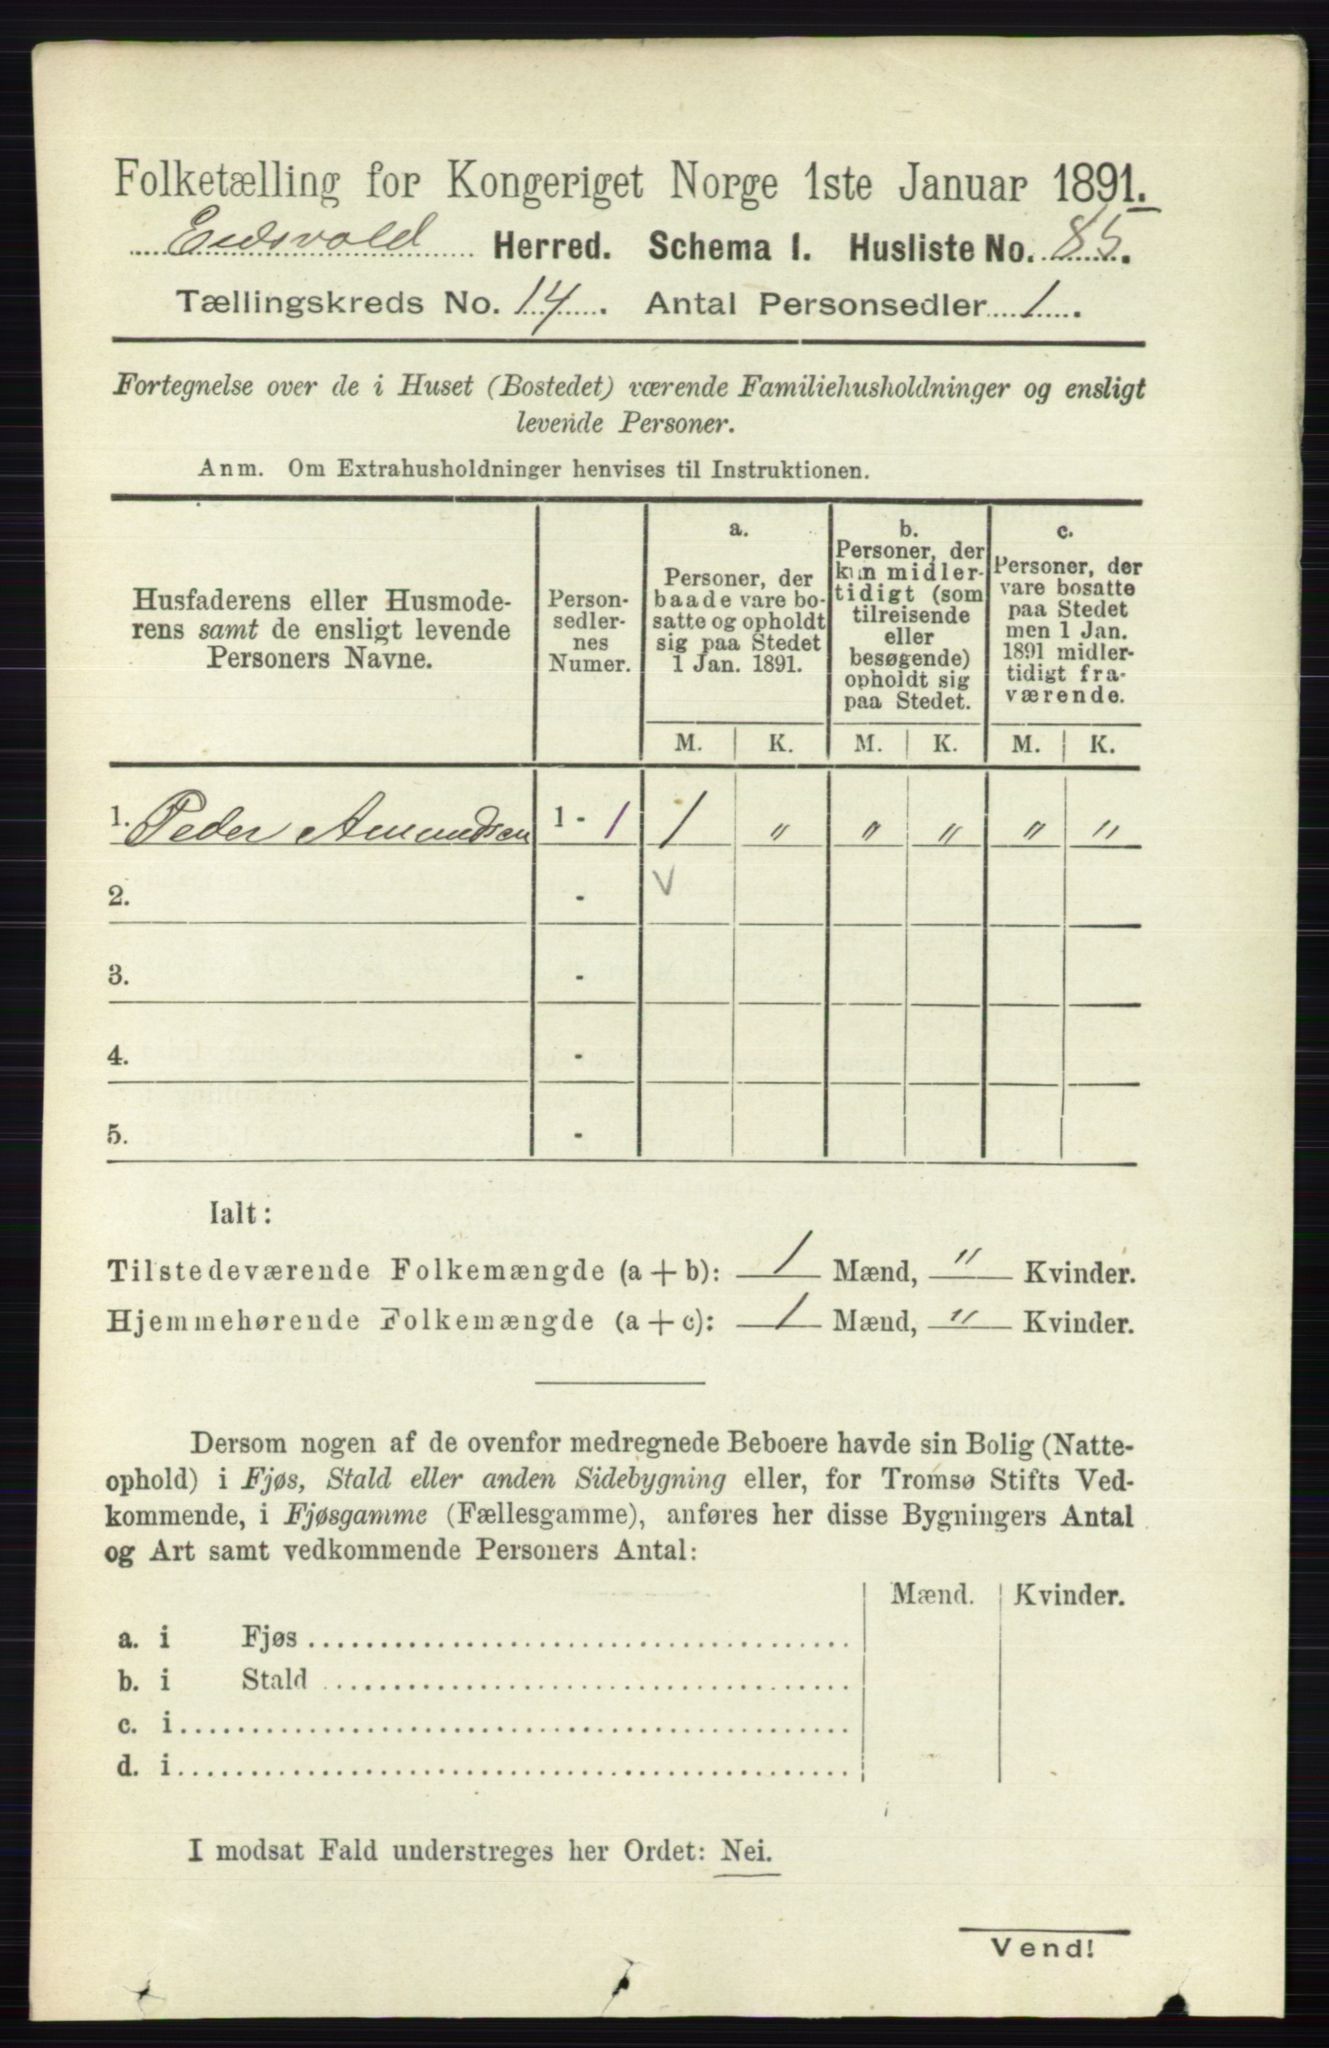 Folketælling for Kongeriget Norge 1ste Januar 1891.
Eidsvold Herred. Schema I. Husliste No. 85.
Tællingskreds No. 14. Antal Personsedler 1.
Fortegnelse over de i Huset (Bostedet) værende Familiehusholdninger og ensligt
levende Personer.
Anm. Om Extrahusholdninger henvises til Instruktionen.
Husfaderens eller Husmode-
rens samt de ensligt levende
Personers Navne.
Person-
sedler-
nes
Numer.
a.
Personer, der
baade vare bo-
satte og opholdt
sig paa Stedet
1 Jan. 1891.
b.
Personer, der
kun midler-
tidigt (som
tilreisende
eller
besøgende)
opholdt sig
paa Stedet.
c.
Personer, der
vare bosatte
paa Stedet
men 1 Jan.
1891 midler-
tidigt fra-
værende.
M. K. M. K. M. K.
1. Peder Amundsen 1 - 1 1 " " " " "
2. - v
3. -
4. -
5. -
Ialt:
Tilstedeværende Folkemængde (a + b): 1 Mænd, " Kvinder.
Hjemmehørende Folkemængde (a + c): 1 Mænd, " Kvinder.
Dersom nogen af de ovenfor medregnede Beboere havde sin Bolig (Natte-
ophold) i Fjøs, Stald eller anden Sidebygning eller, for Tromsø Stifts Ved-
kommende, i Fjøsgamme (Fællesgamme), anføres her disse Bygningers Antal
og Art samt vedkommende Personers Antal:
Mænd. Kvinder.
a. i Fjøs
b. i Stald
c. i
d. i
I modsat Fald understreges her Ordet: Nei.
Vend!